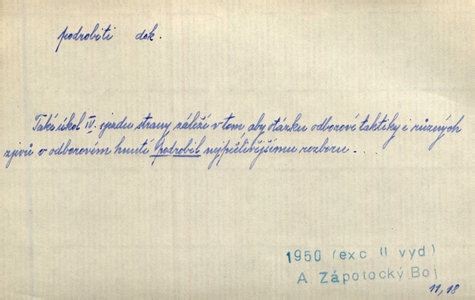 podrobiti dok.
Také úkol IV. sjezdu strany záleží v tom, aby otázku odborové taktiky i různých
zjevů v odborovém hnutí podrobil nejpečlivějšímu rozboru...
1950 (exc II vyd)
A Zápotocký Boj
11,18